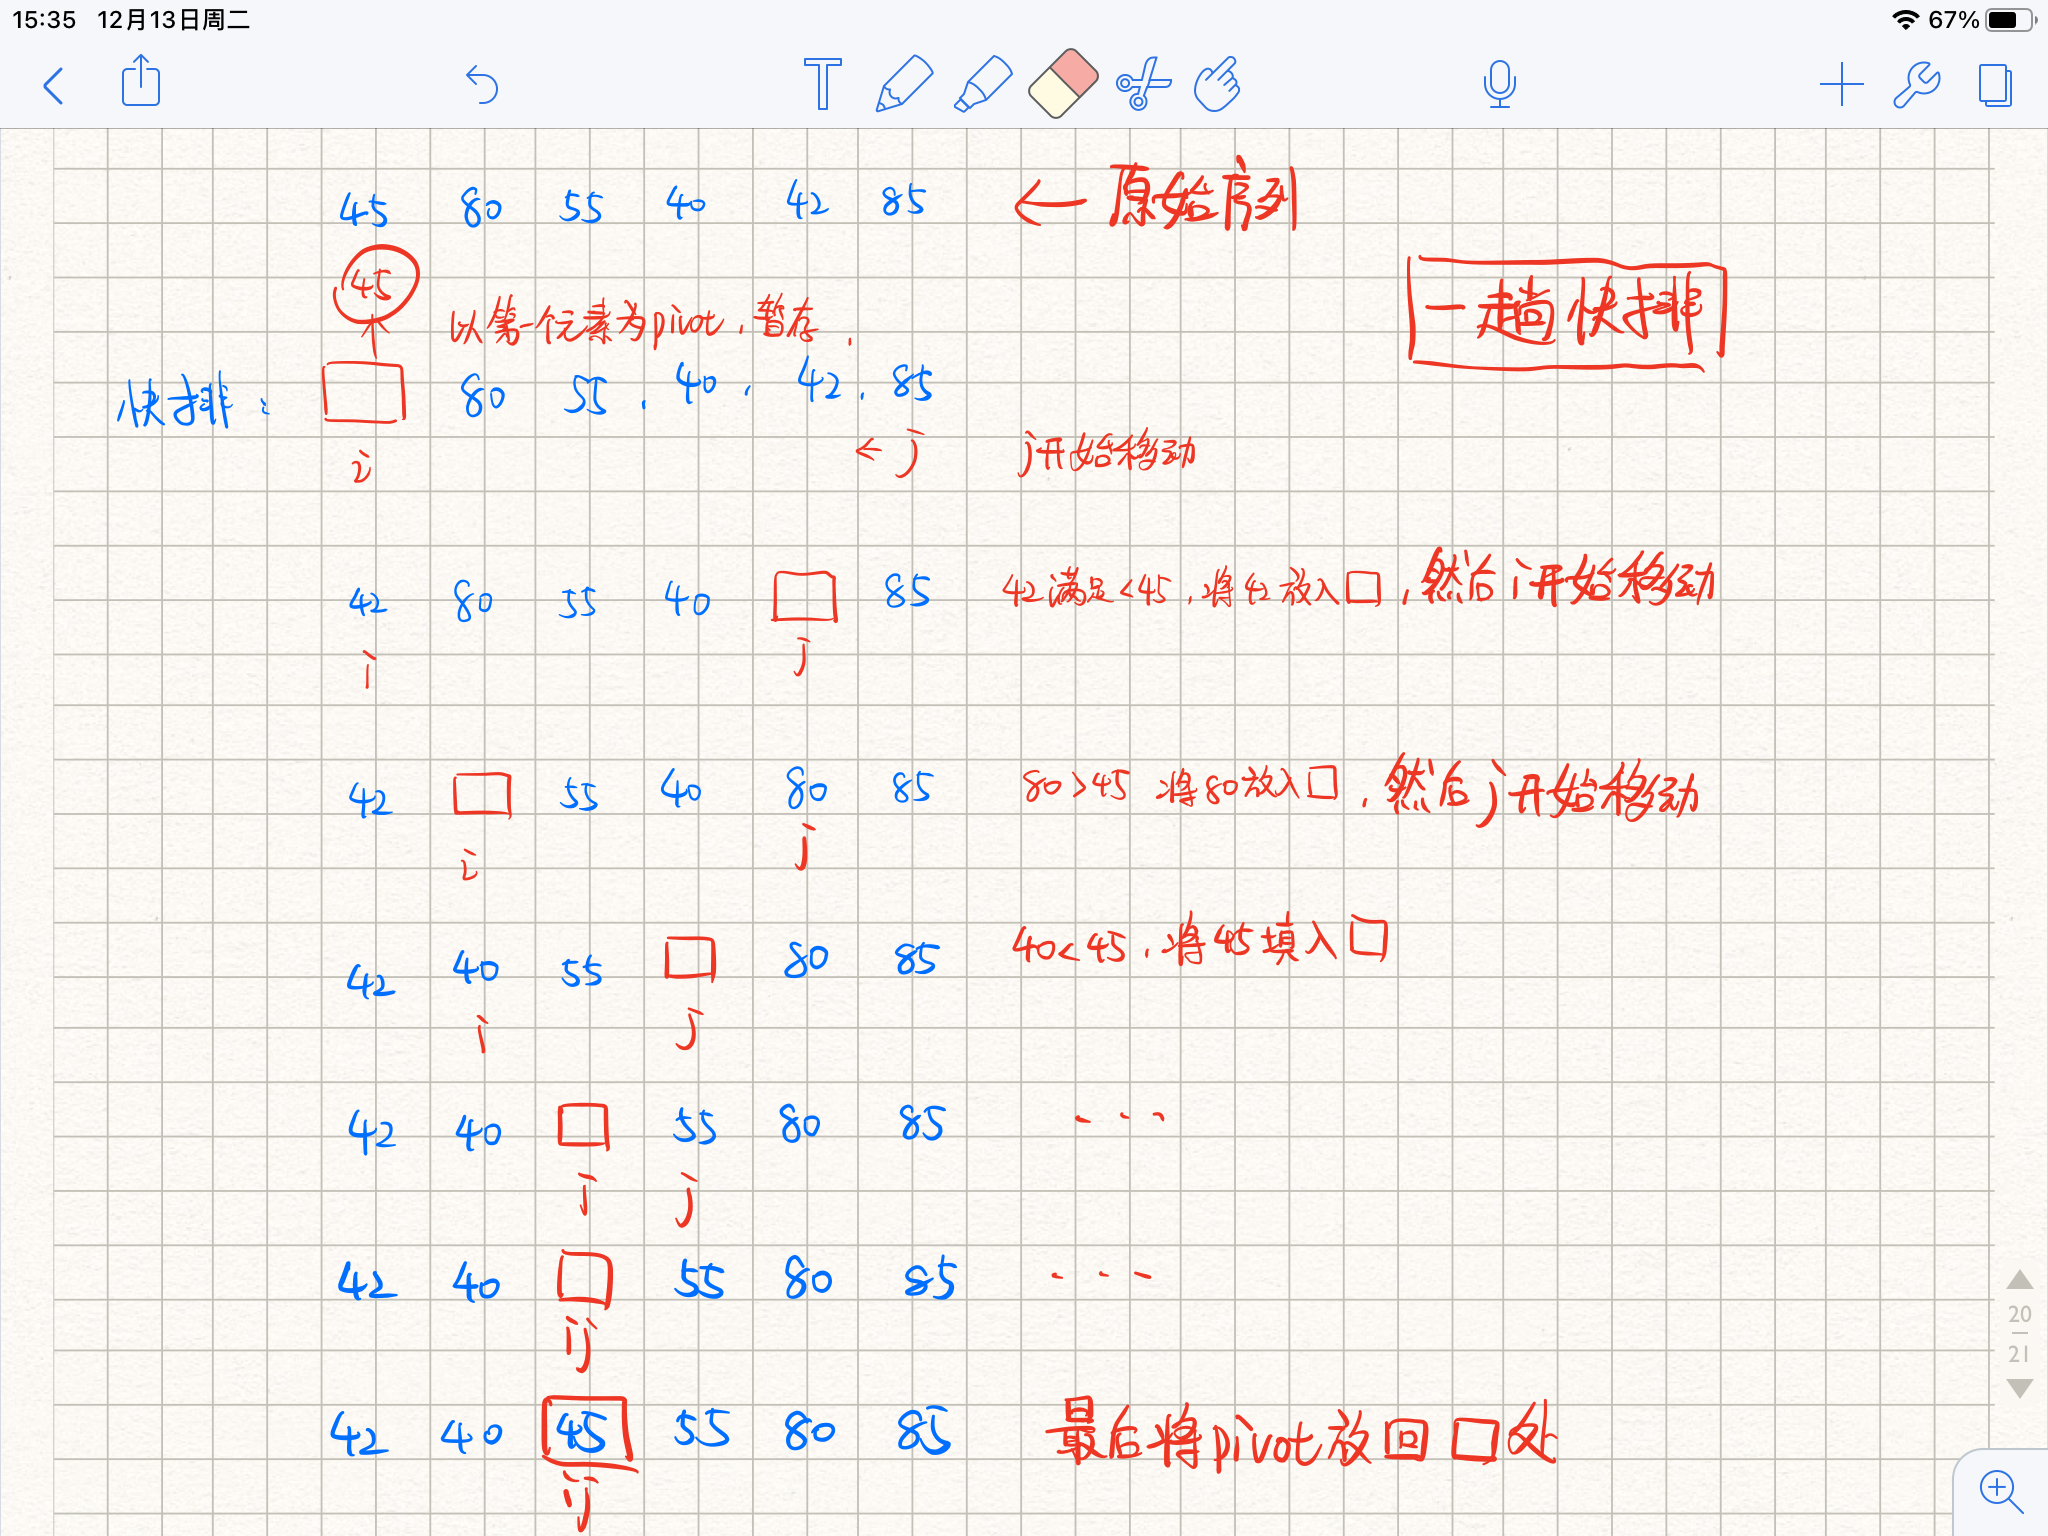 15:35 12月13日周二 67%
45 80 55 40 42 85 ← 原始序列
45
一趟快排
以第一个元素为pivot,暂存.
快排: □ 80 55, 40, 42, 85
i ← j j开始移动
42 80 55 40 □ 85 42满足<45,将42放入□,然后i开始移动
i j
42 □ 55 40 80 85 80>45 将80放入□,然后j开始移动
i j
42 40 55 □ 80 85 40<45,将45填入□
i j
42 40 □ 55 80 85 ...
i j
42 40 □ 55 80 85 ...
ij
42 40 45 55 80 85 最后将pivot放回□处
ij
20
21